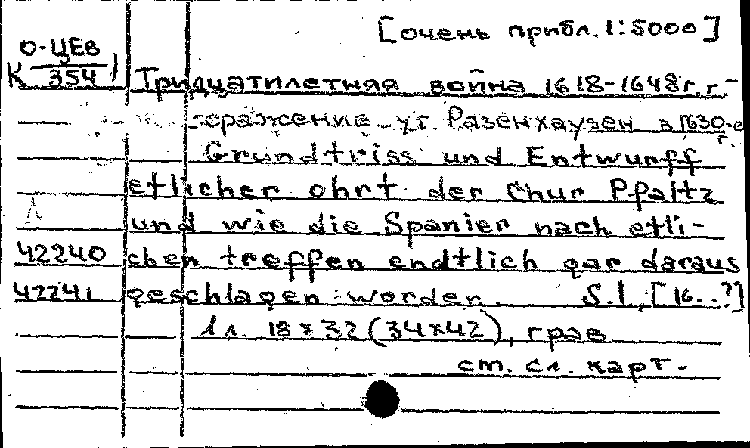 [очень прибл. 1:5000]
О-ЦЕВ
К 354
Тридцатилетняя война 1618-1648г.г.-
сражение у г. Разенхаузен в 1630-е г.
Grundtriss und Entwurff
etlicher ohrt der Chur Pfaltz
und wie die Spanier nach etli-
42240 chen treffen endtlich gar daraus
42241 geschlagen worden. S.l., [16..?]
1л. 18×32 (34×42), грав
см. сл. карт.